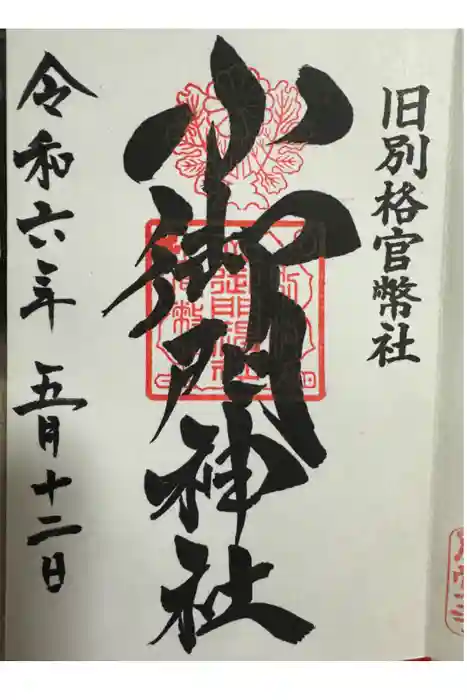 旧別格官幣社
小御門神社
令和六年 五月十二日